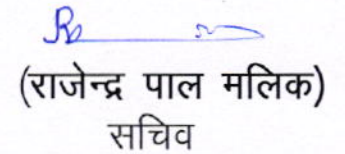 (राजेन्द्र पाल मलिक)
सचिव